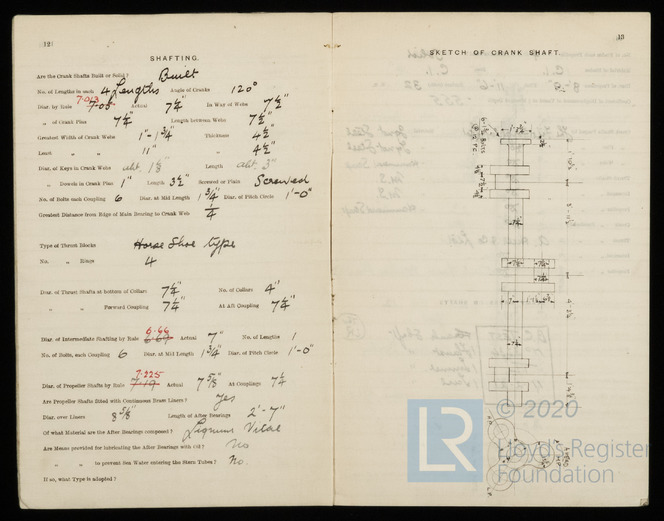 12
SHAFTING.
Are the Crank Shafts Built or Solid? Built
No. of Lengths in each 4 Lengths Angle of Cranks 120°
Diar. by Rule 7.05 Actual 7¼" In Way of Webs 7½"
„ of Crank Pins 7¼" Length between Webs 7½"
Greatest Width of Crank Webs 1'-1¾" Thickness 4½"
Least „ 11" „ 4½"
Diar. of Keys in Crank Webs abt. 1⅛" Length abt. 3"
„ Dowels in Crank Pins 1" Length 3½" Screwed or Plain Screwed
No. of Bolts each Coupling 6 Diar. at Mid Length 1¾" Diar. of Pitch Circle 1'-0"
Greatest Distance from Edge of Main Bearing to Crank Web ¼"
Type of Thrust Blocks Horse Shoe type
No. „ Rings 4
Diar. of Thrust Shafts at bottom of Collars 7¼" No. of Collars 4
„ „ Forward Coupling 7¼" At Aft Coupling 7¼"
6.66
Diar. of Intermediate Shafting by Rule Actual 7" No. of Lengths 1
No. of Bolts, each Coupling 6 Diar. at Mid Length 1¾" Diar. of Pitch Circle 1'-0"
7.225
Diar. of Propeller Shafts by Rule 7.19 Actual 7⅝" At Couplings 7¼
Are Propeller Shafts fitted with Continuous Brass Liners? Yes
Diar. over Liners 8⅝" Length of After Bearings 2'-7"
Of what Material are the After Bearings composed? Lignum Vitae
Are Means provided for lubricating the After Bearings with Oil? No
„ „ to prevent Sea Water entering the Stern Tubes? No.
If so, what Type is adopted?
13
SKETCH OF CRANK SHAFT.
© 2020
LR
Lloyd's Register
Foundation